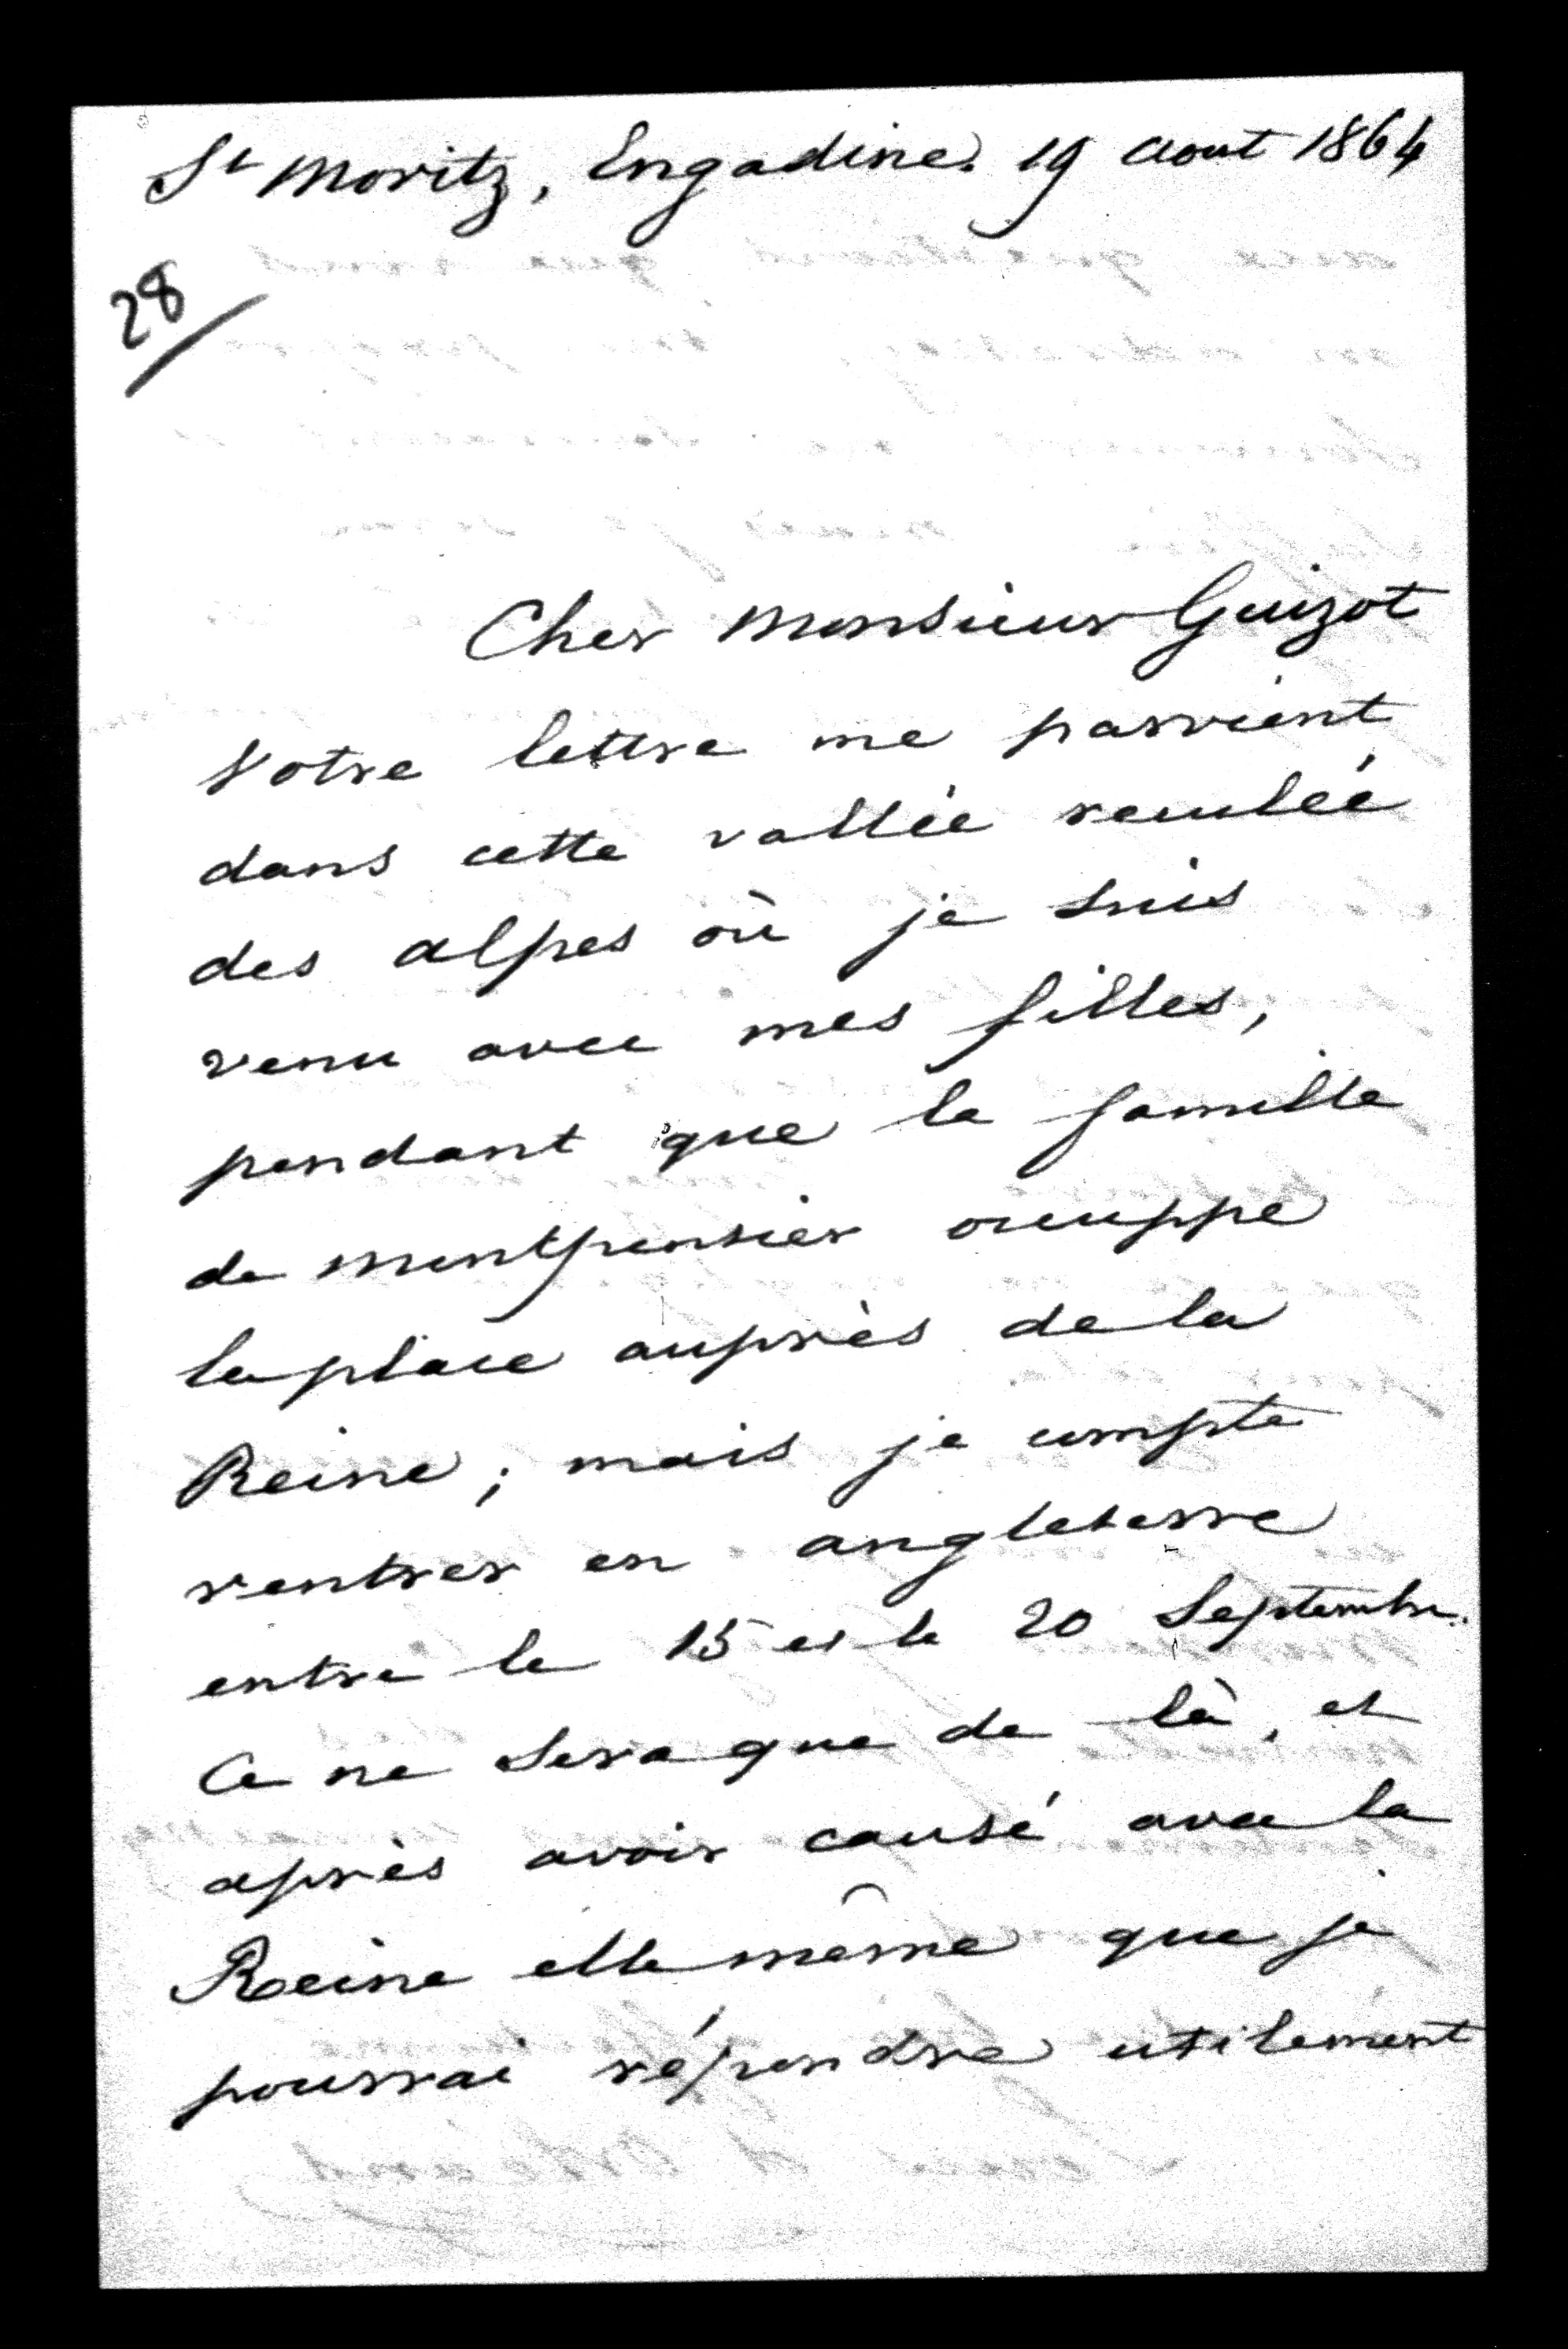 St Moritz, Engadine. 19 aout 1864
28
Cher Monsieur Guizot
Votre lettre me parvient
dans cette vallée reculée
des alpes où je suis
venu avec mes filles,
pendant que la famille
de Montpensier occuppe
la place auprès de la
Reine ; mais je compte
rentrer en angleterre
entre le 15 et le 20 Septembre.
Ce ne sera que de là, et
après avoir causé avec la
Reine elle même que je
pourrai répondre utilement